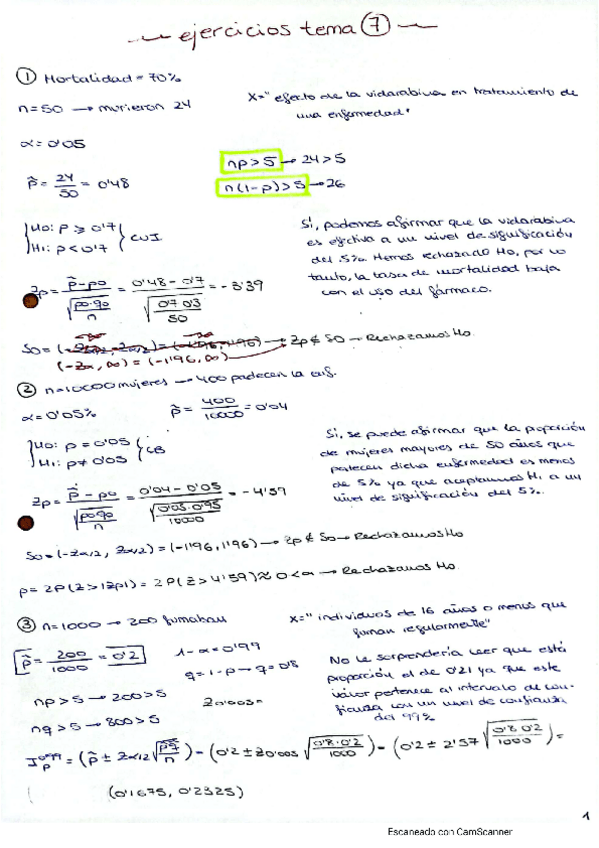 ejercicios tema 7
① Mortalidad = 70%
n = 50 → murieron 24
X = "efecto de la vidarabina en tratamiento de
una enfermedad"
α = 0'05
p̂ = 24/50 = 0'48
np > 5 → 24 > 5
n(1-p) > 5 → 26
H0: p ≥ 0'7
H1: p < 0'7
Sí, podemos afirmar que la vidarabina
es efectiva a un nivel de significación
del 5%. Hemos rechazado H0, por lo
tanto, la tasa de mortalidad baja
con el uso del fármaco.
Zp = (p̂ - p0)/√(p0·q0/n) = (0'48 - 0'7)/√(0'7·0'3/50) = -3'39
S0 = → Zp ∉ S0 → Rechazamos H0.
(-Zα, ∞) = (-1'96, ∞)
② n = 10000 mujeres → 400 padecen la enf.
α = 0'05%
p̂ = 400/10000 = 0'04
H0: p = 0'05
H1: p ≠ 0'05
CB
Si, se puede afirmar que la proporción
de mujeres mayores de 50 años que
padecen dicha enfermedad es menos
de 5% ya que aceptamos H1 a un
nivel de significación del 5%.
Zp = (p̂ - p0)/√(p0q0/n) = (0'04 - 0'05)/√(0'05·0'95/10000) = -4'59
S0 = (-Zα/2, Zα/2) = (-1'96, 1'96) → Zp ∉ S0 → Rechazamos H0
p = 2P(Z > |Zp|) = 2P(Z > 4'59) ≈ 0 < α → Rechazamos H0.
③ n = 1000 → 200 fumaban
X = "individuos de 16 años o menos que
fuman regularmente"
p̂ = 200/1000 = 0'2
1 - α = 0'99
q = 1 - p → q = 0'8
np > 5 → 200 > 5
nq > 5 → 800 > 5
Z0'005 =
No le sorprendería leer que esta
proporción el de 0'21 ya que este
valor pertenece al intervalo de con-
fianza con un nivel de confianza
del 99%
I p 0'99 = (p̂ ± Zα/2 √(p̂q̂/n)) = (0'2 ± Z0'005 √(0'8·0'2/1000)) = (0'2 ± 2'57 √(0'8·0'2/1000)) =
(0'1675, 0'2325)
1
Escaneado con CamScanner